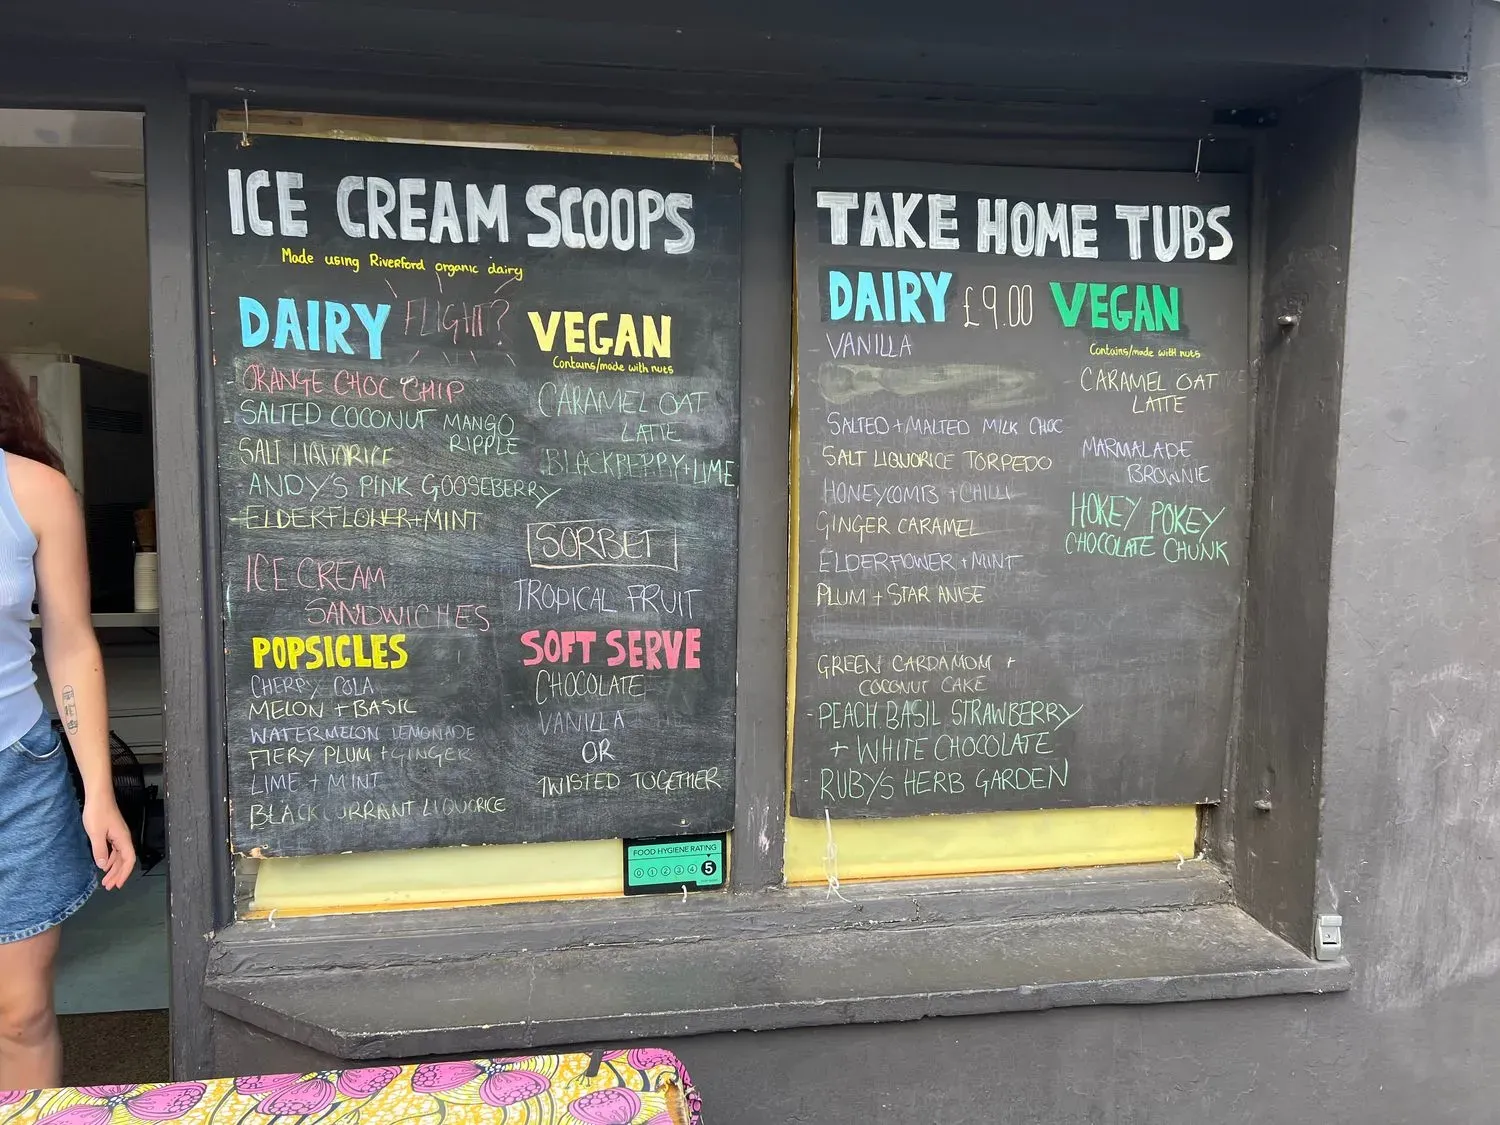 ICE CREAM SCOOPS
Made using Riverford organic dairy
DAIRY
FLIGHT?
ORANGE CHOC CHIP
SALTED COCONUT MANGO
RIPPLE
SALT LIQUORICE
ANDY'S PINK GOOSEBERRY
ELDERFLOWER+MINT
ICE CREAM
SANDWICHES
POPSICLES
CHERRY COLA
MELON + BASIL
WATERMELON LEMONADE
FIERY PLUM + GINGER
LIME + MINT
BLACKCURRANT LIQUORICE
VEGAN
Contains/made with nuts
CARAMEL OAT
LATTE
BLACKBERRY+LIME
SORBET
TROPICAL FRUIT
SOFT SERVE
CHOCOLATE
VANILLA
OR
TWISTED TOGETHER
FOOD HYGIENE RATING
0 1 2 3 4 5
TAKE HOME TUBS
DAIRY £9.00
VANILLA
SALTED + MALTED MILK CHOC
SALT LIQUORICE TORPEDO
HONEYCOMB + CHILLI
GINGER CARAMEL
ELDERFLOWER + MINT
PLUM + STAR ANISE
GREEN CARDAMOM +
COCONUT CAKE
PEACH BASIL STRAWBERRY
+ WHITE CHOCOLATE
RUBY'S HERB GARDEN
VEGAN
Contains/made with nuts
CARAMEL OAT
LATTE
MARMALADE
BROWNIE
HOKEY POKEY
CHOCOLATE CHUNK